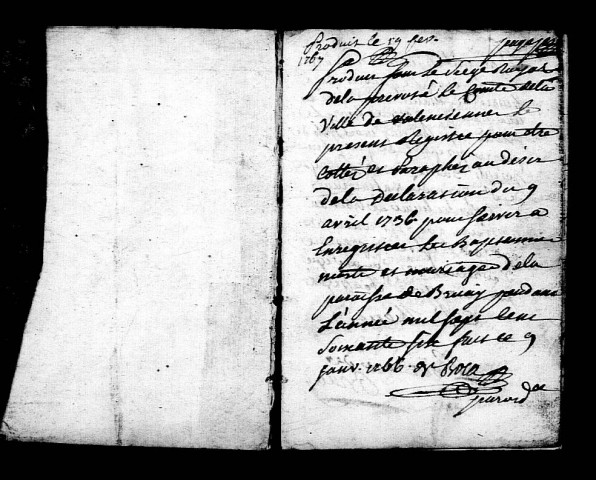 Produit le 19 fev.
1767
Produit sous le Siege Royal
dela prevoté le Comte della
Ville de Valenciennes le
present Registre pour etre
Cotté et Paraphé au desir
dela declaration du 9
avril 1736 pour servir a
Enregistrer les Baptemmes
morts et mariages dela
paroisse de Bruay pendant
L'année mil sept cent
Soixante six fait ce 9
janv. 1766